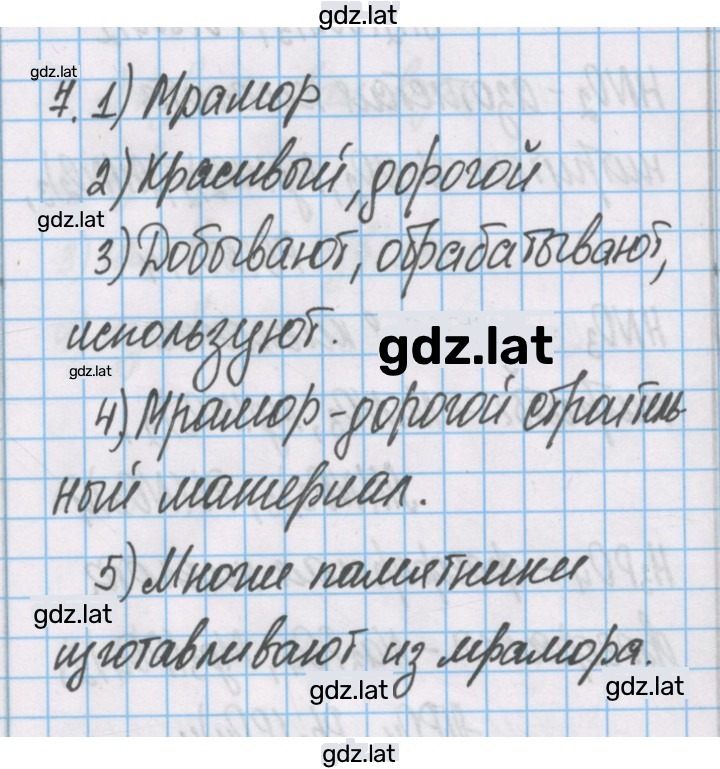 gdz.lat
gdz.lat
7. 1) Мрамор
2) Красивый, дорогой
gdz.lat
3) Добывают, обрабатывают,
используют.
gdz.lat
gdz.lat
4) Мрамор - дорогой строитель
ный материал.
5) Многие памятники
gdz.lat
изготавливают из мрамора.
gdz.lat
gdz.lat
gdz.lat